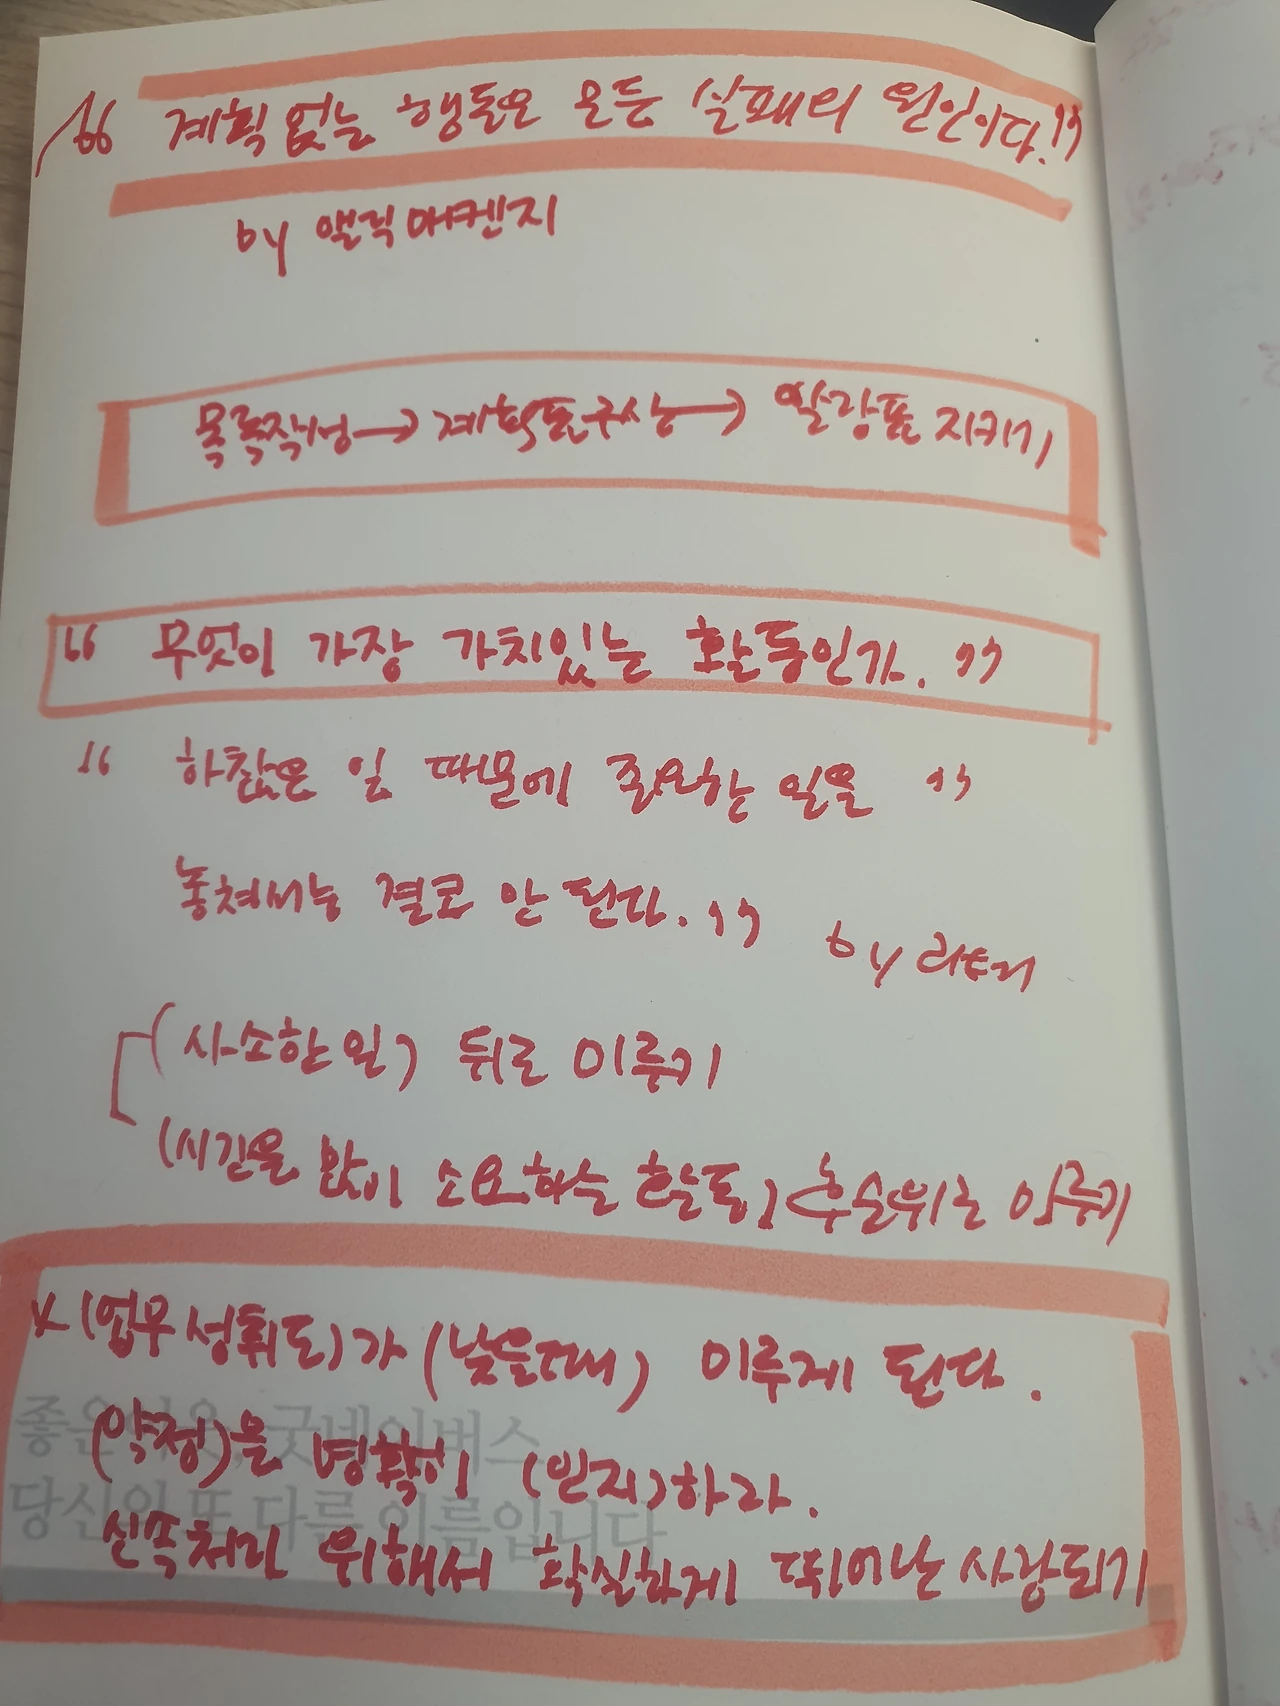 “ 계획 없는 행동은 모든 실패의 원인이다.”
by 앨릭 매켄지
목록작성→계획표구상→ 알람표 지키기
“ 무엇이 가장 가치있는 활동인가. ”
“ 하찮은 일 때문에 중요한 일을 ”
놓쳐서는 결코 안 된다. ” by
(사소한 일) 뒤로 미루기
(시간을 많이 소요하는 활동) 후순위로 미루기
(업무 성취도)가 (낮을때) 미루게 된다.
(약점)을 명확히 (인지)하라.
신속처리 위해서 확실하게 뛰어난 사람되기
좋은이웃, 굿네이버스
당신의 또 다른 이름입니다